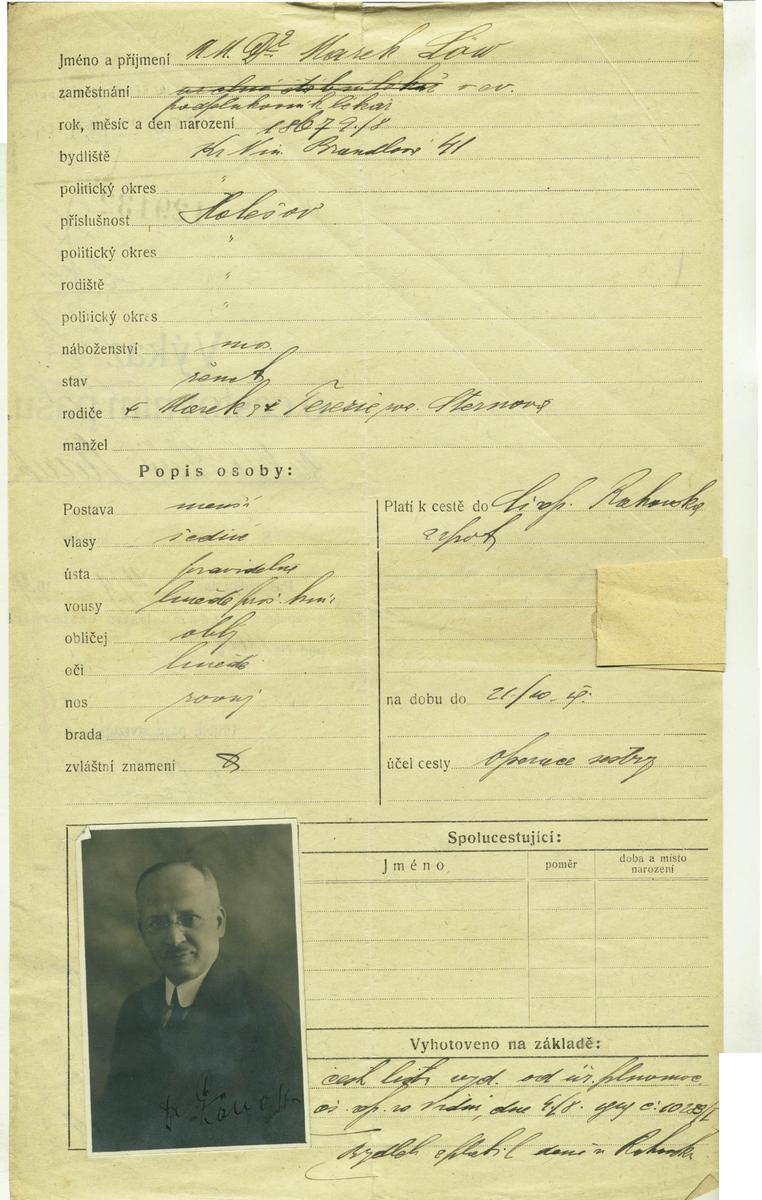 Jméno a příjmení M. Dr. Marek Löw
zaměstnání v ev.
podplukovník lékař
rok, měsíc a den narození 1867 9./8
bydliště Kr. Vin. Brandlova 41
politický okres "
příslušnost Holešov
politický okres "
rodiště "
politický okres "
náboženství mos.
stav ženat
rodiče † Marek, † Terezie, Sternova
manžel
Popis osoby:
Postava menší
vlasy šedivé
ústa pravidelná
vousy hnědé
obličej oblý
oči hnědé
nos rovný
brada
zvláštní znamení
Platí k cestě do Rakouska
a zpět
na dobu do 21/10
účel cesty operace sestry
Spolucestující:
Jméno poměr doba a místo narození
Vyhotoveno na základě:
cest. listu vyd. od
dne 4/8.
Bydlel a platil daně v Rakousku
Dr.